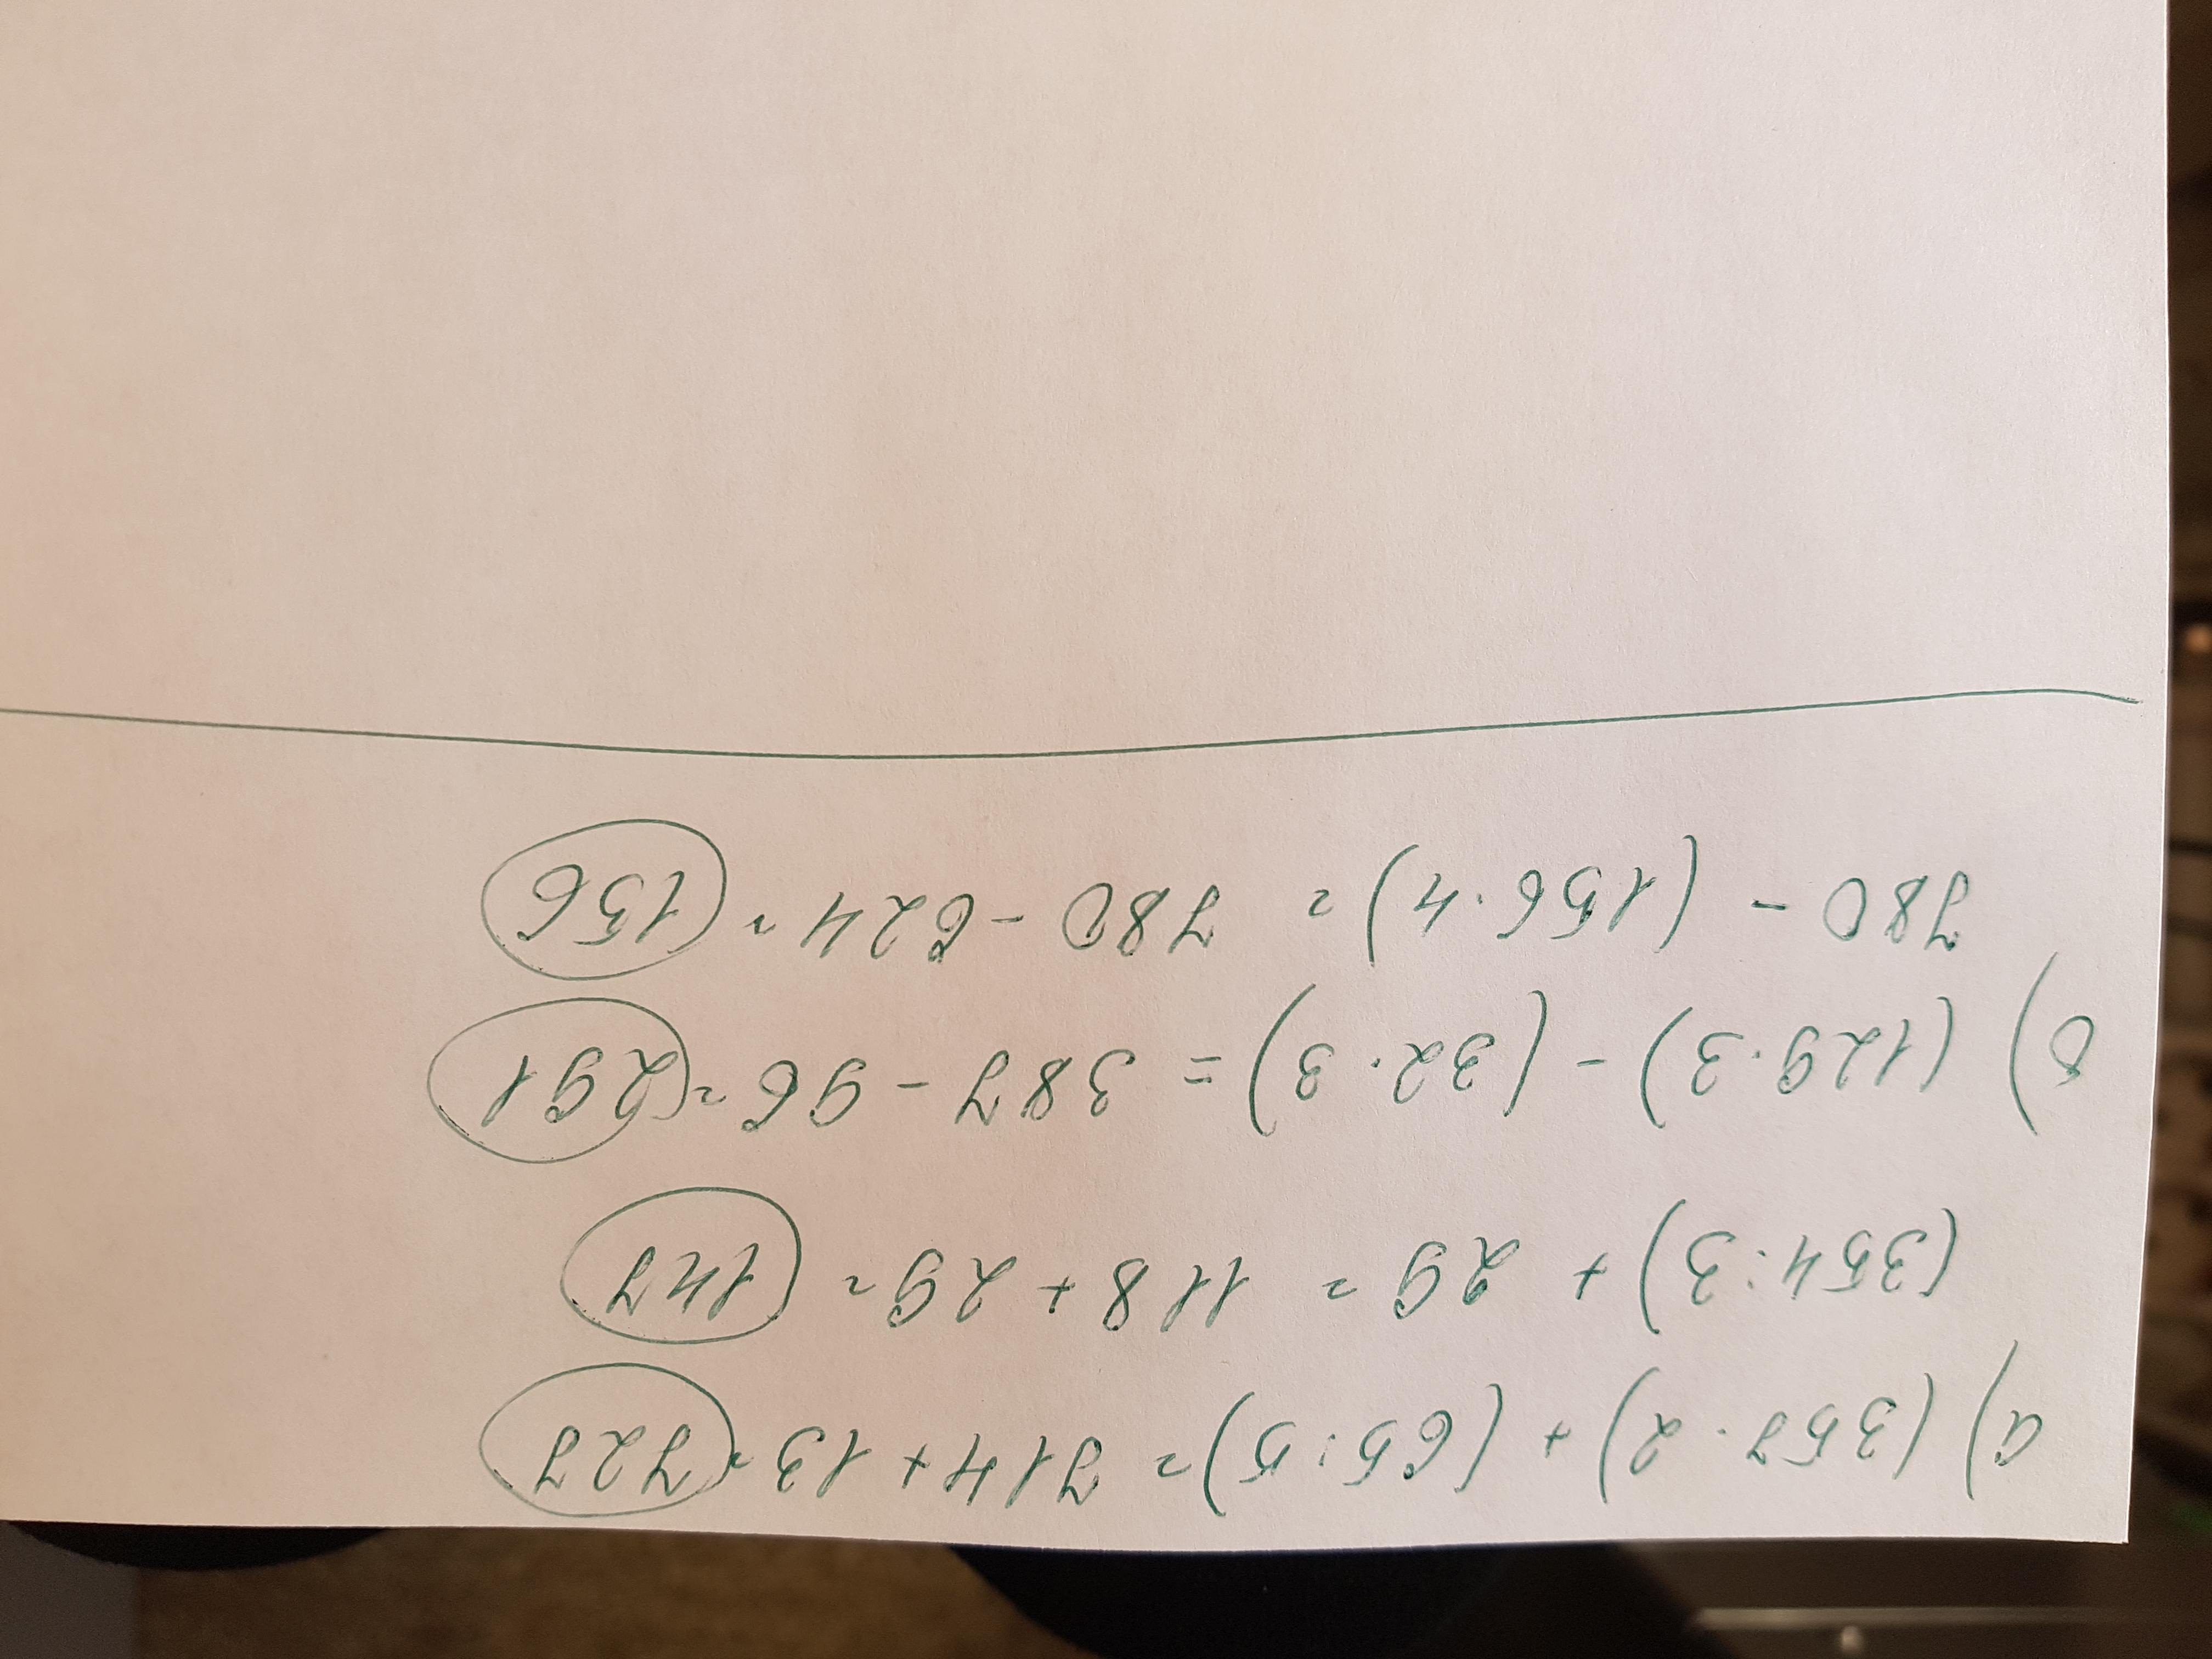 а) (357 · 2) + (65 : 5) = 714 + 13 = 727
(354 : 3) + 29 = 118 + 29 = 147
б) (129 · 3) - (32 · 3) = 387 - 96 = 291
780 - (156 · 4) = 780 - 624 = 156